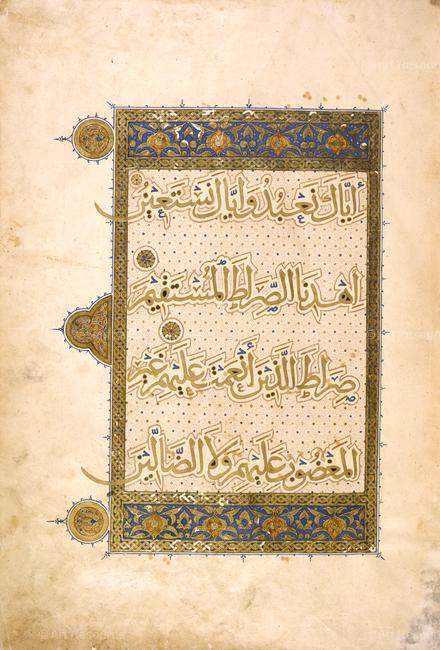 إِيَّاكَ نَعْبُدُ وَإِيَّاكَ نَسْتَعِينُ
اهْدِنَا الصِّرَاطَ الْمُسْتَقِيمَ
صِرَاطَ الَّذِينَ أَنْعَمْتَ عَلَيْهِمْ غَيْرِ
الْمَغْضُوبِ عَلَيْهِمْ وَلَا الضَّالِّينَ
Art Resource